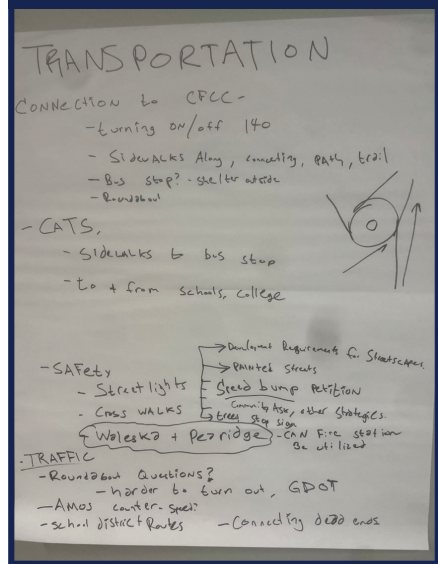 TRANSPORTATION
CONNECTION to CFCC-
- turning ON/off 140
- SidewALKS Along, connecting, PAth, trail
- Bus stop? - shelter outside
- Roundabout
- CATS,
- Sidewalks to bus stop
- to + from schools, college
→ Development Requirements for Streetscapes.
- SAFety
→ PAINTED Streets
- Street lights
- Speed bump petition
Community Ask, other Strategies.
- Cross WALKS
→ trees stop sign
- Waleska + Pearidge - CAN Fire station
Be utilized
- TRAFFIC
- Roundabout Questions?
- harder to turn out, GDOT
- Amos counter-speed?
- school district Routes - Connecting dead ends